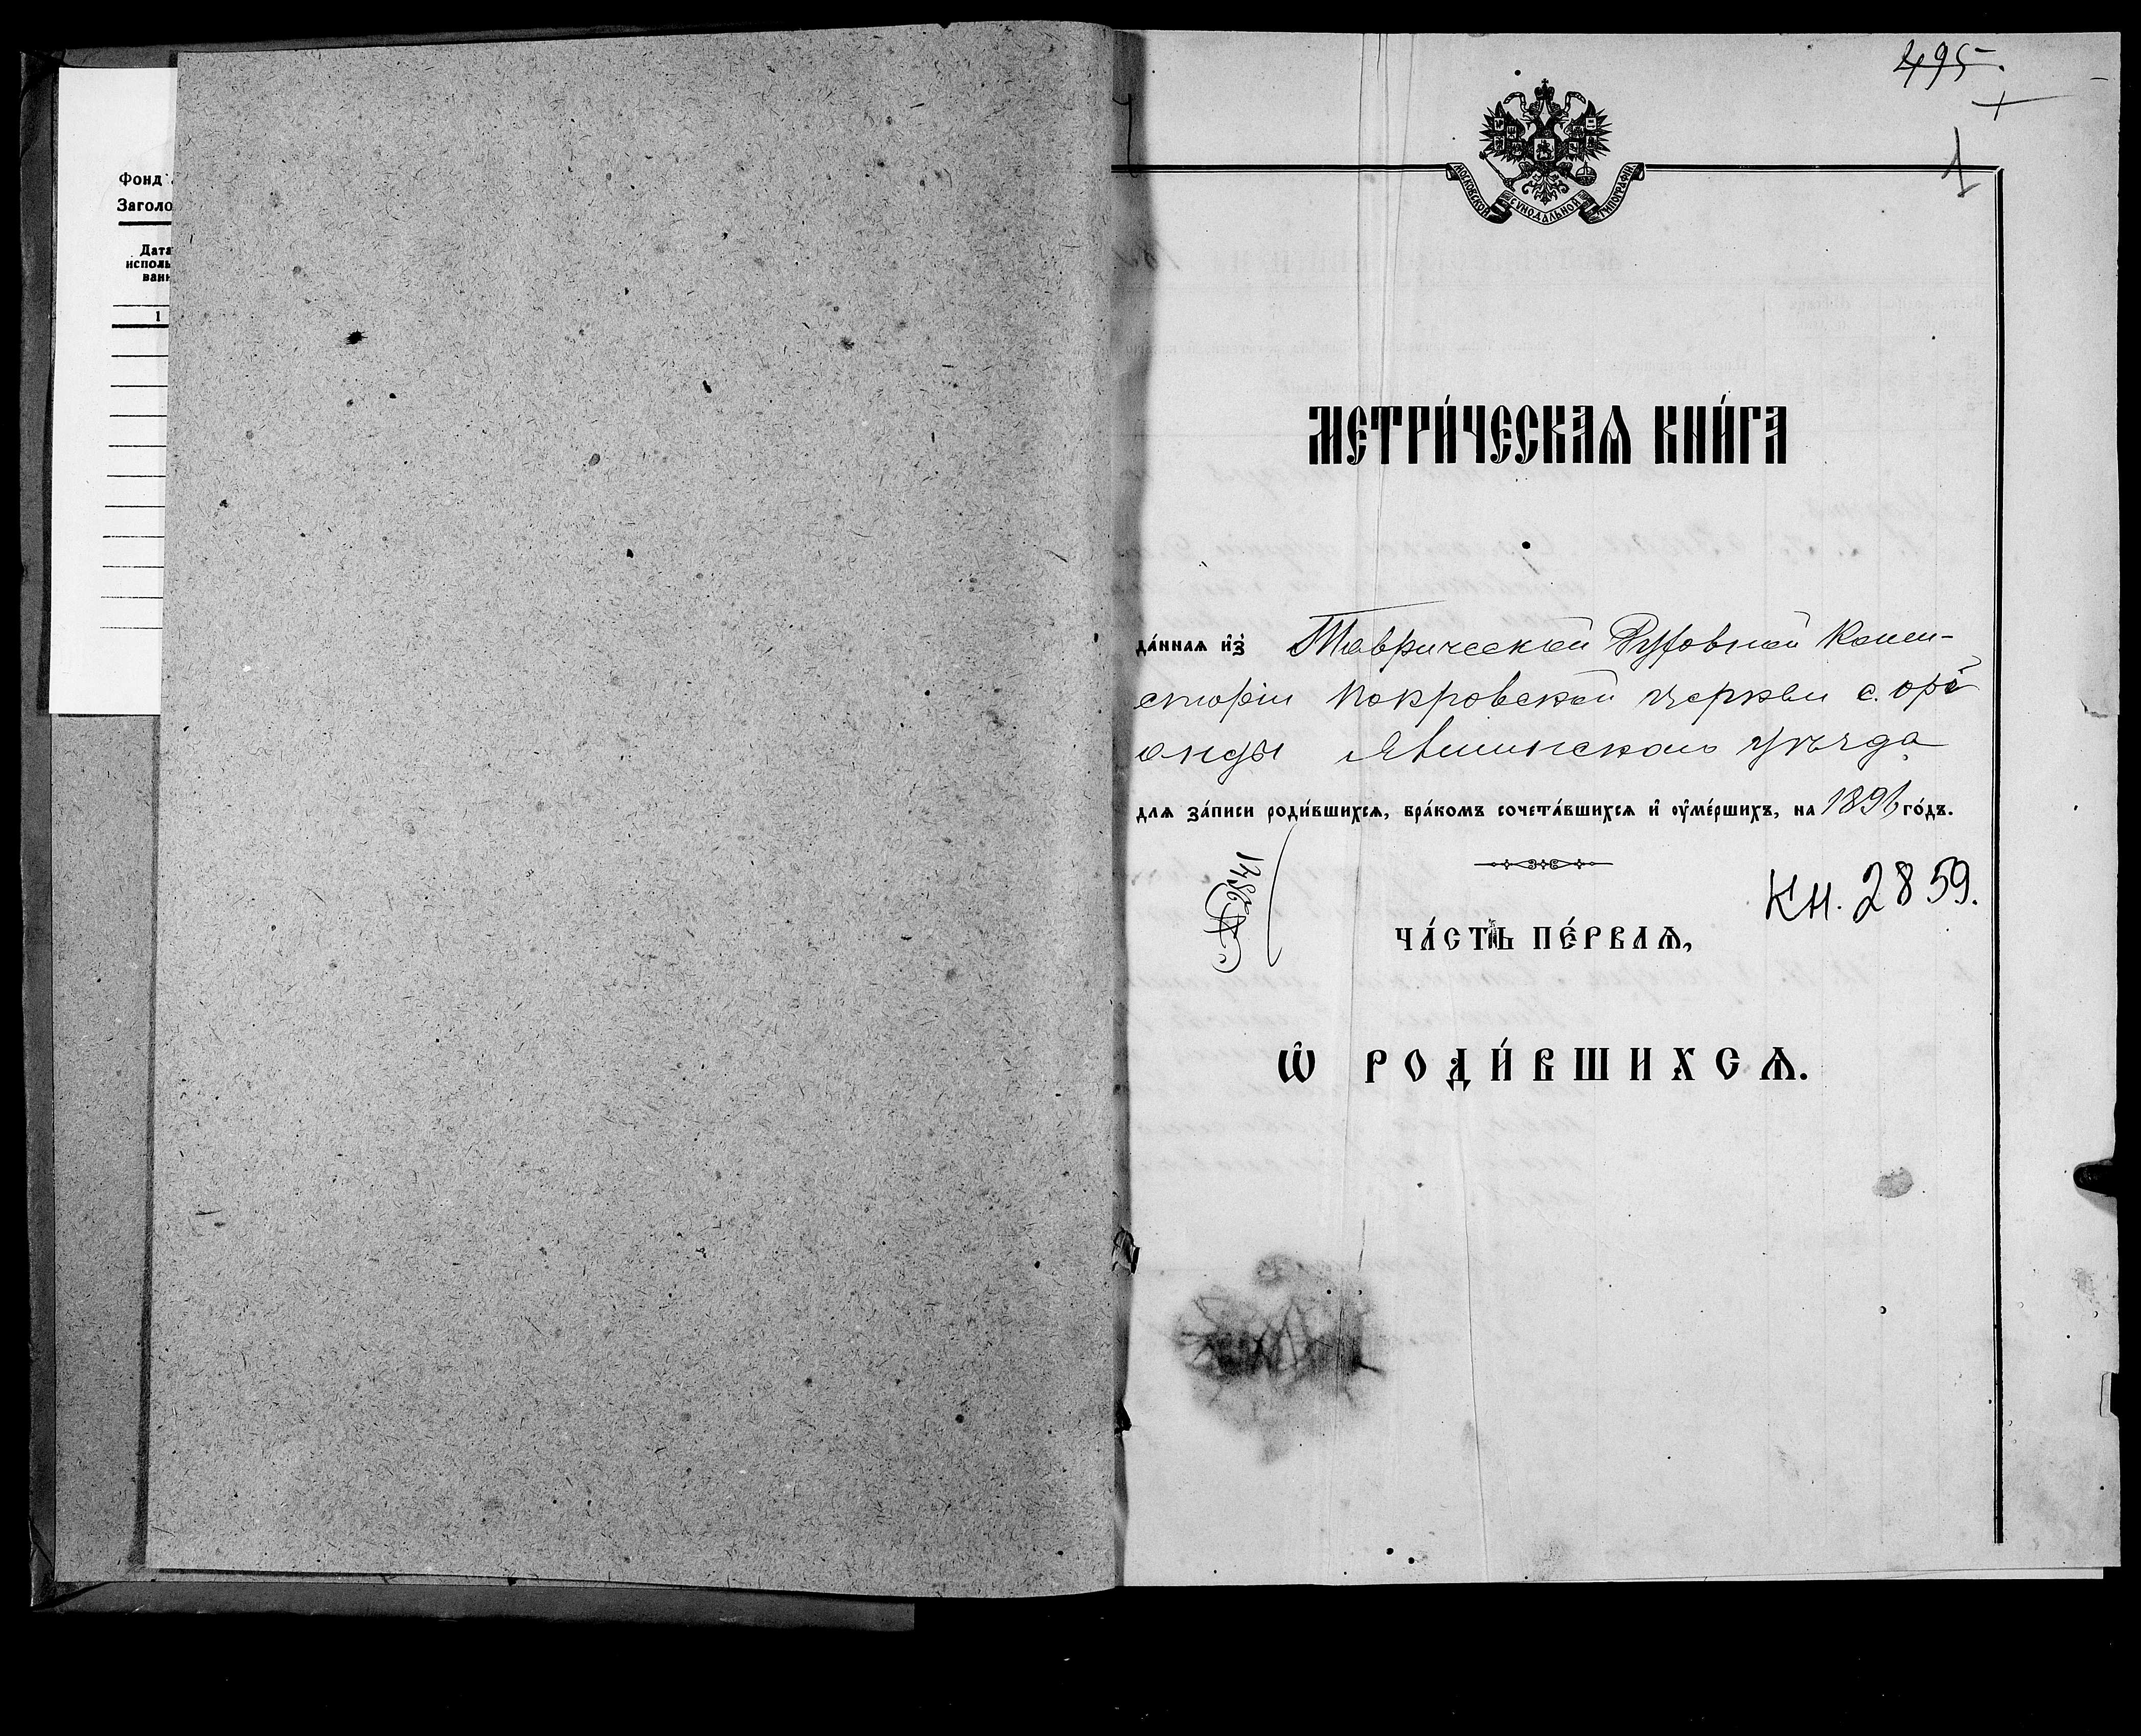 Фонд
Заголо
Дата
исполь
ван
1
495.
1
МОСКОВСКОЙ СѴНОДАЛЬНОЙ ТИПОГРАФІИ
МЕТРИ́ЧЕСКАѦ КНИ́ГА
да́ннаѧ и҆з̾ Таврической Духовной Конси-
сторіи Покровской церкви с. Оре
анды Ялтинскаго уѣзда
для за́писи роди́вшихсѧ, бра́комъ сочета́вшихсѧ и҆ ᲂу҆ме́ршихъ, на 1896 го́дъ.
Кн. 2859.
ЧА́СТЬ ПЕ́РВАѦ,
Ѡ҆ РОДИ́ВШИХСѦ.